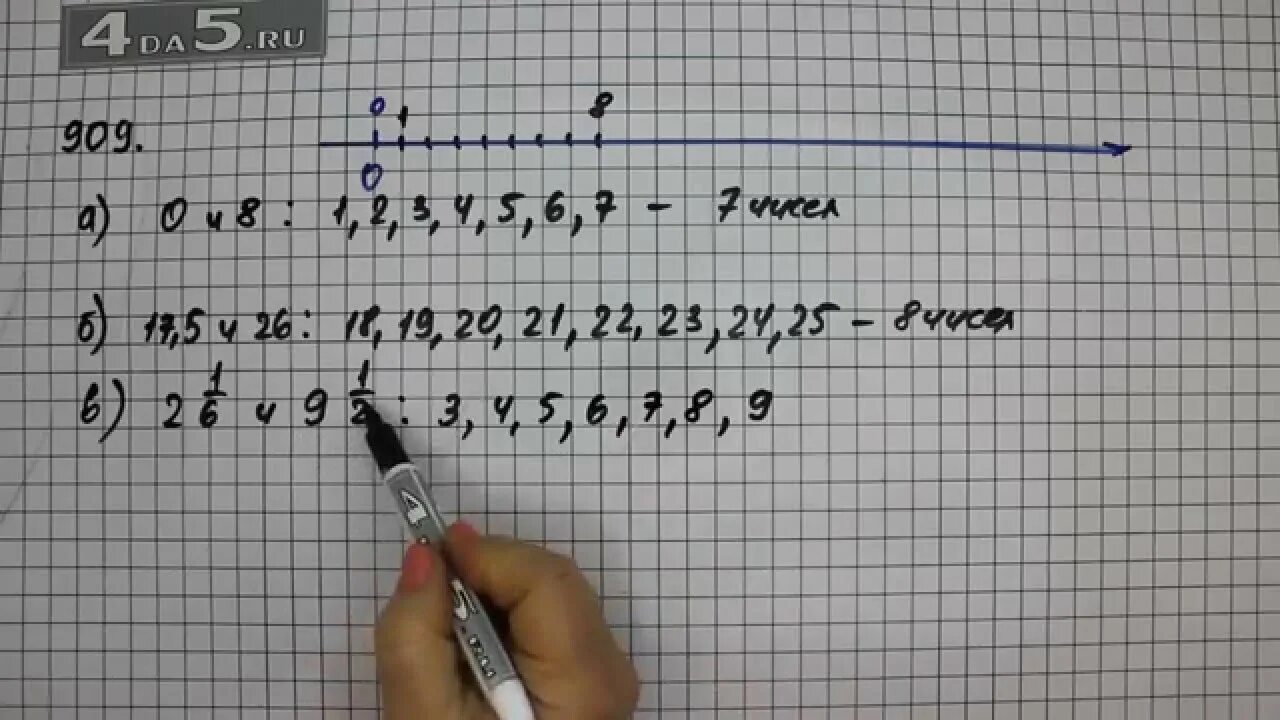 4DA5.RU
0 1 8
909.
0
а) 0 и 8 : 1, 2, 3, 4, 5, 6, 7 – 7 чисел
б) 17,5 и 26 : 18, 19, 20, 21, 22, 23, 24, 25 – 8 чисел
в) 2 1/6 и 9 1/2 : 3, 4, 5, 6, 7, 8, 9